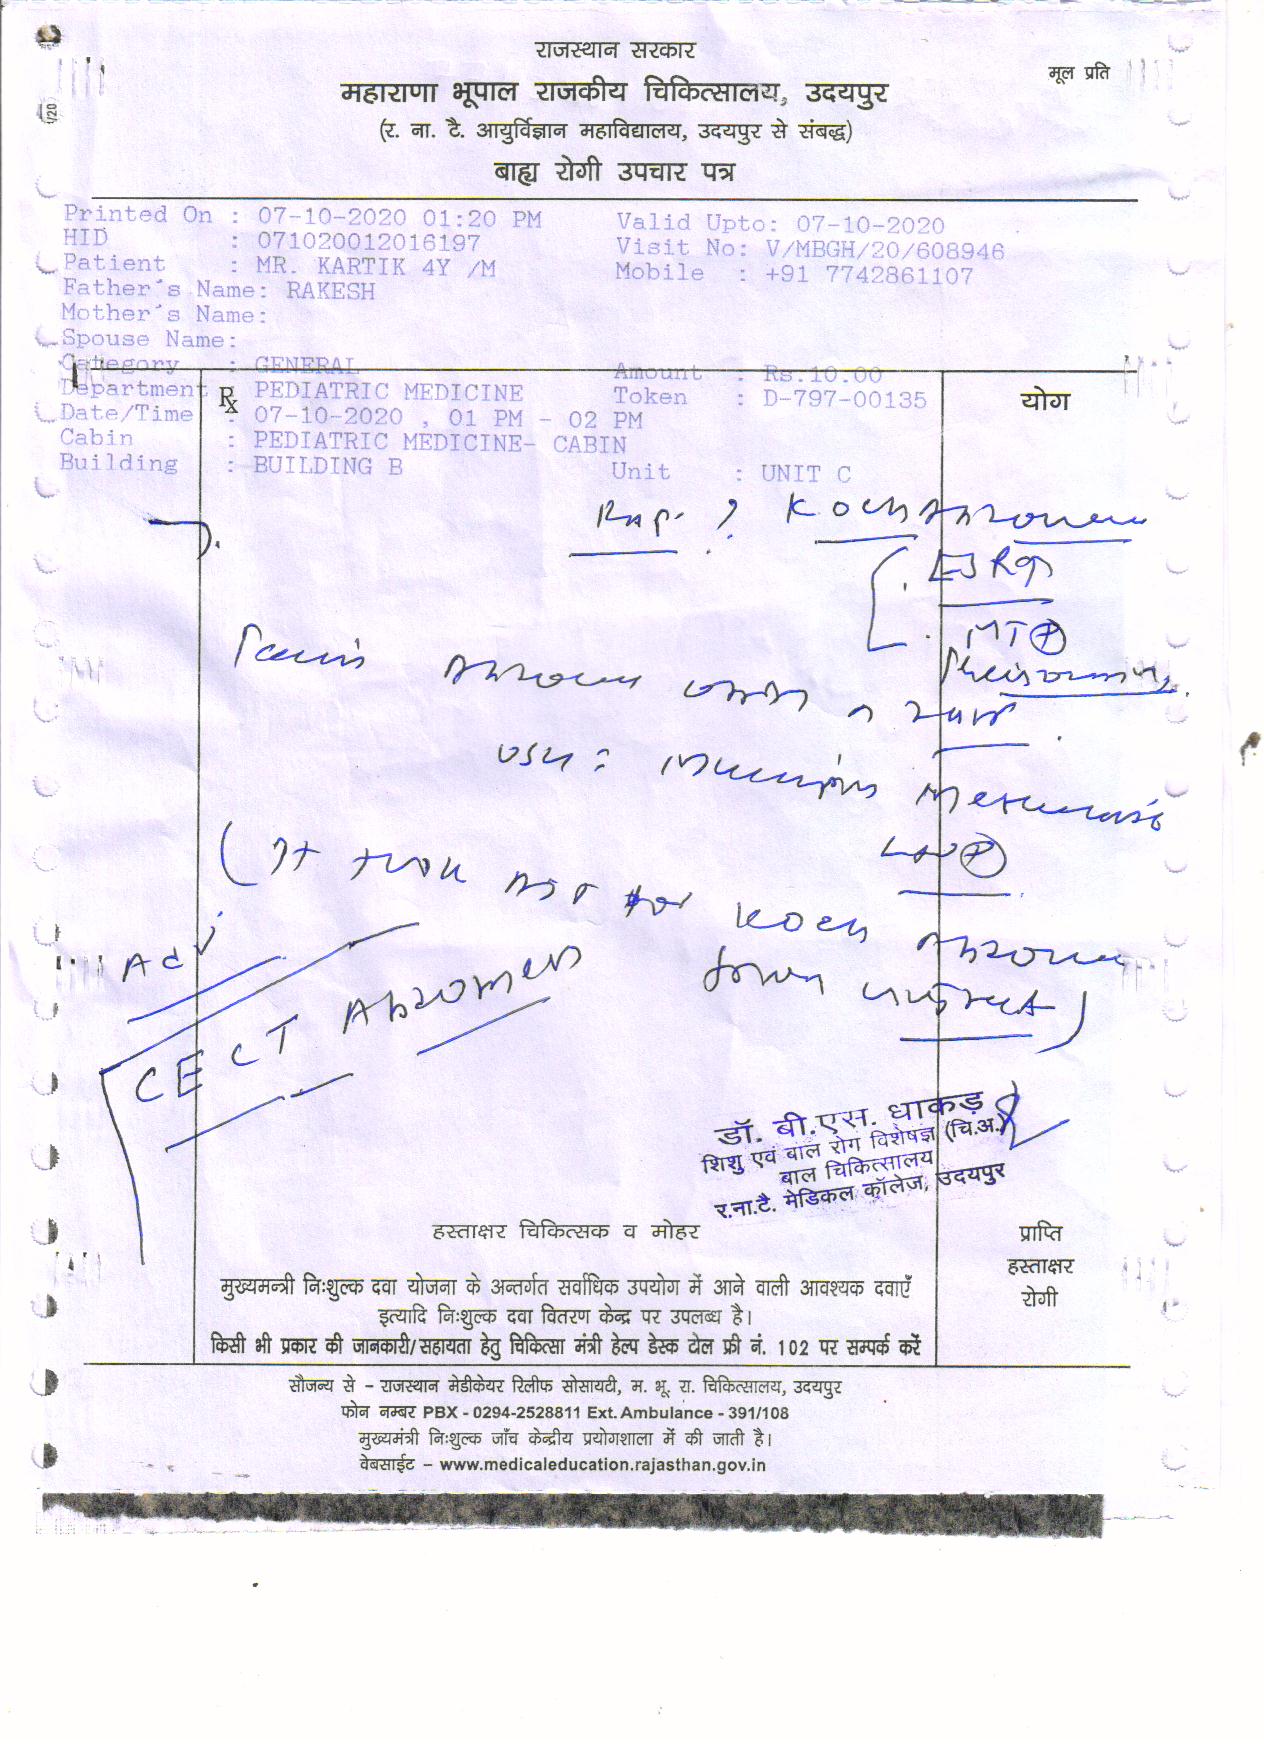 राजस्थान सरकार
मूल प्रति
महाराणा भूपाल राजकीय चिकित्सालय, उदयपुर
(र. ना. टै. आयुर्विज्ञान महाविद्यालय, उदयपुर से संबद्ध)
बाह्य रोगी उपचार पत्र
Printed On : 07-10-2020 01:20 PM Valid Upto: 07-10-2020
HID : 071020012016197 Visit No: V/MBGH/20/608946
Patient : MR. KARTIK 4Y /M Mobile : +91 7742861107
Father's Name: RAKESH
Mother's Name:
Spouse Name:
Category : GENERAL Amount : Rs.10.00
Department : PEDIATRIC MEDICINE Token : D-797-00135
Rx योग
Date/Time : 07-10-2020 , 01 PM - 02 PM
Cabin : PEDIATRIC MEDICINE- CABIN
Building : BUILDING B Unit : UNIT C
? Koch Abdomen
ESR
MT +
USG : Multiple Mesenteric
LN +
for Koch Abdomen
Adv
CECT Abdomen
डॉ. बी.एस. धाकड़
शिशु एवं बाल रोग विशेषज्ञ (चि.अ.)
बाल चिकित्सालय
र.ना.टै. मेडिकल कॉलेज, उदयपुर
हस्ताक्षर चिकित्सक व मोहर
प्राप्ति
हस्ताक्षर
रोगी
मुख्यमन्त्री निःशुल्क दवा योजना के अन्तर्गत सर्वाधिक उपयोग में आने वाली आवश्यक दवाएँ
इत्यादि निःशुल्क दवा वितरण केन्द्र पर उपलब्ध है।
किसी भी प्रकार की जानकारी/सहायता हेतु चिकित्सा मंत्री हेल्प डेस्क टोल फ्री नं. 102 पर सम्पर्क करें
सौजन्य से – राजस्थान मेडीकेयर रिलीफ सोसायटी, म. भू. रा. चिकित्सालय, उदयपुर
फोन नम्बर PBX - 0294-2528811 Ext. Ambulance - 391/108
मुख्यमंत्री निःशुल्क जाँच केन्द्रीय प्रयोगशाला में की जाती है।
वेबसाईट – www.medicaleducation.rajasthan.gov.in